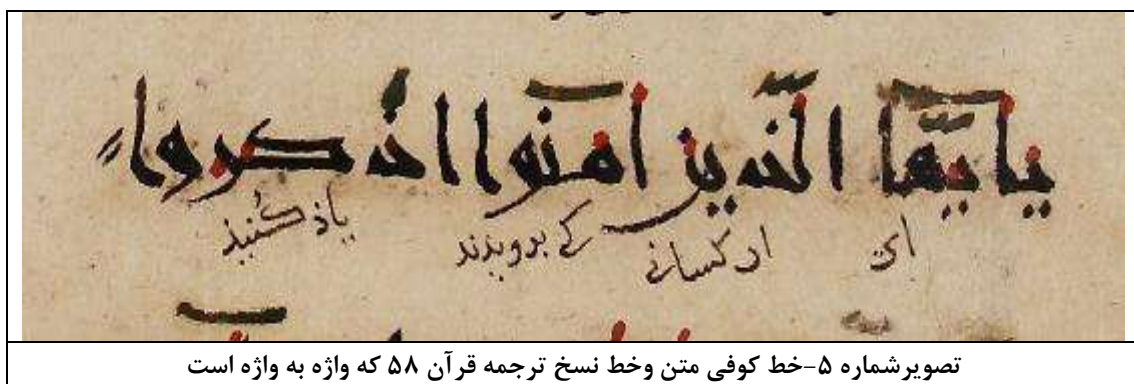 يايّها الّذين امنوا اذكروا
ای ان کسانی کی برویدند یاذ کُنیذ
تصویرشماره ۵-خط کوفی متن وخط نسخ ترجمه قرآن ۵۸ که واژه به واژه است